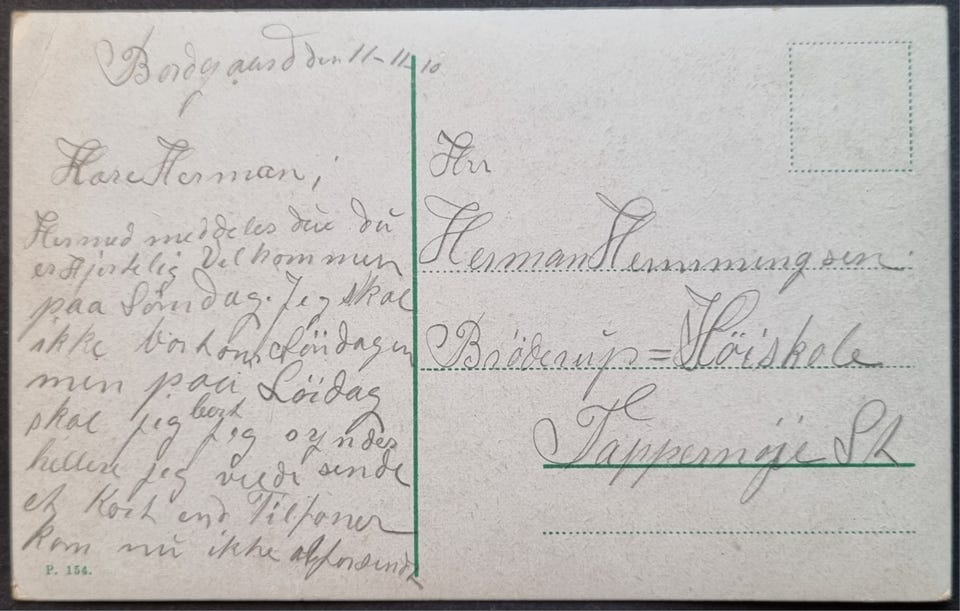 Bordgaard den 11-11-10
Kære Herman,
Hermed meddeles due du
er Hjertelig Velkommen
paa Søndag. Jeg skal
ikke bort om Søndagen
men paa Löidag
skal jeg bort jeg syndes
hellere jeg vilde sende
et Kort end Tilfoner
kom nu ikke
P. 154.
Hrr
Herman Hemmingsen.
Bröderup=Höiskole
Tappernøje St